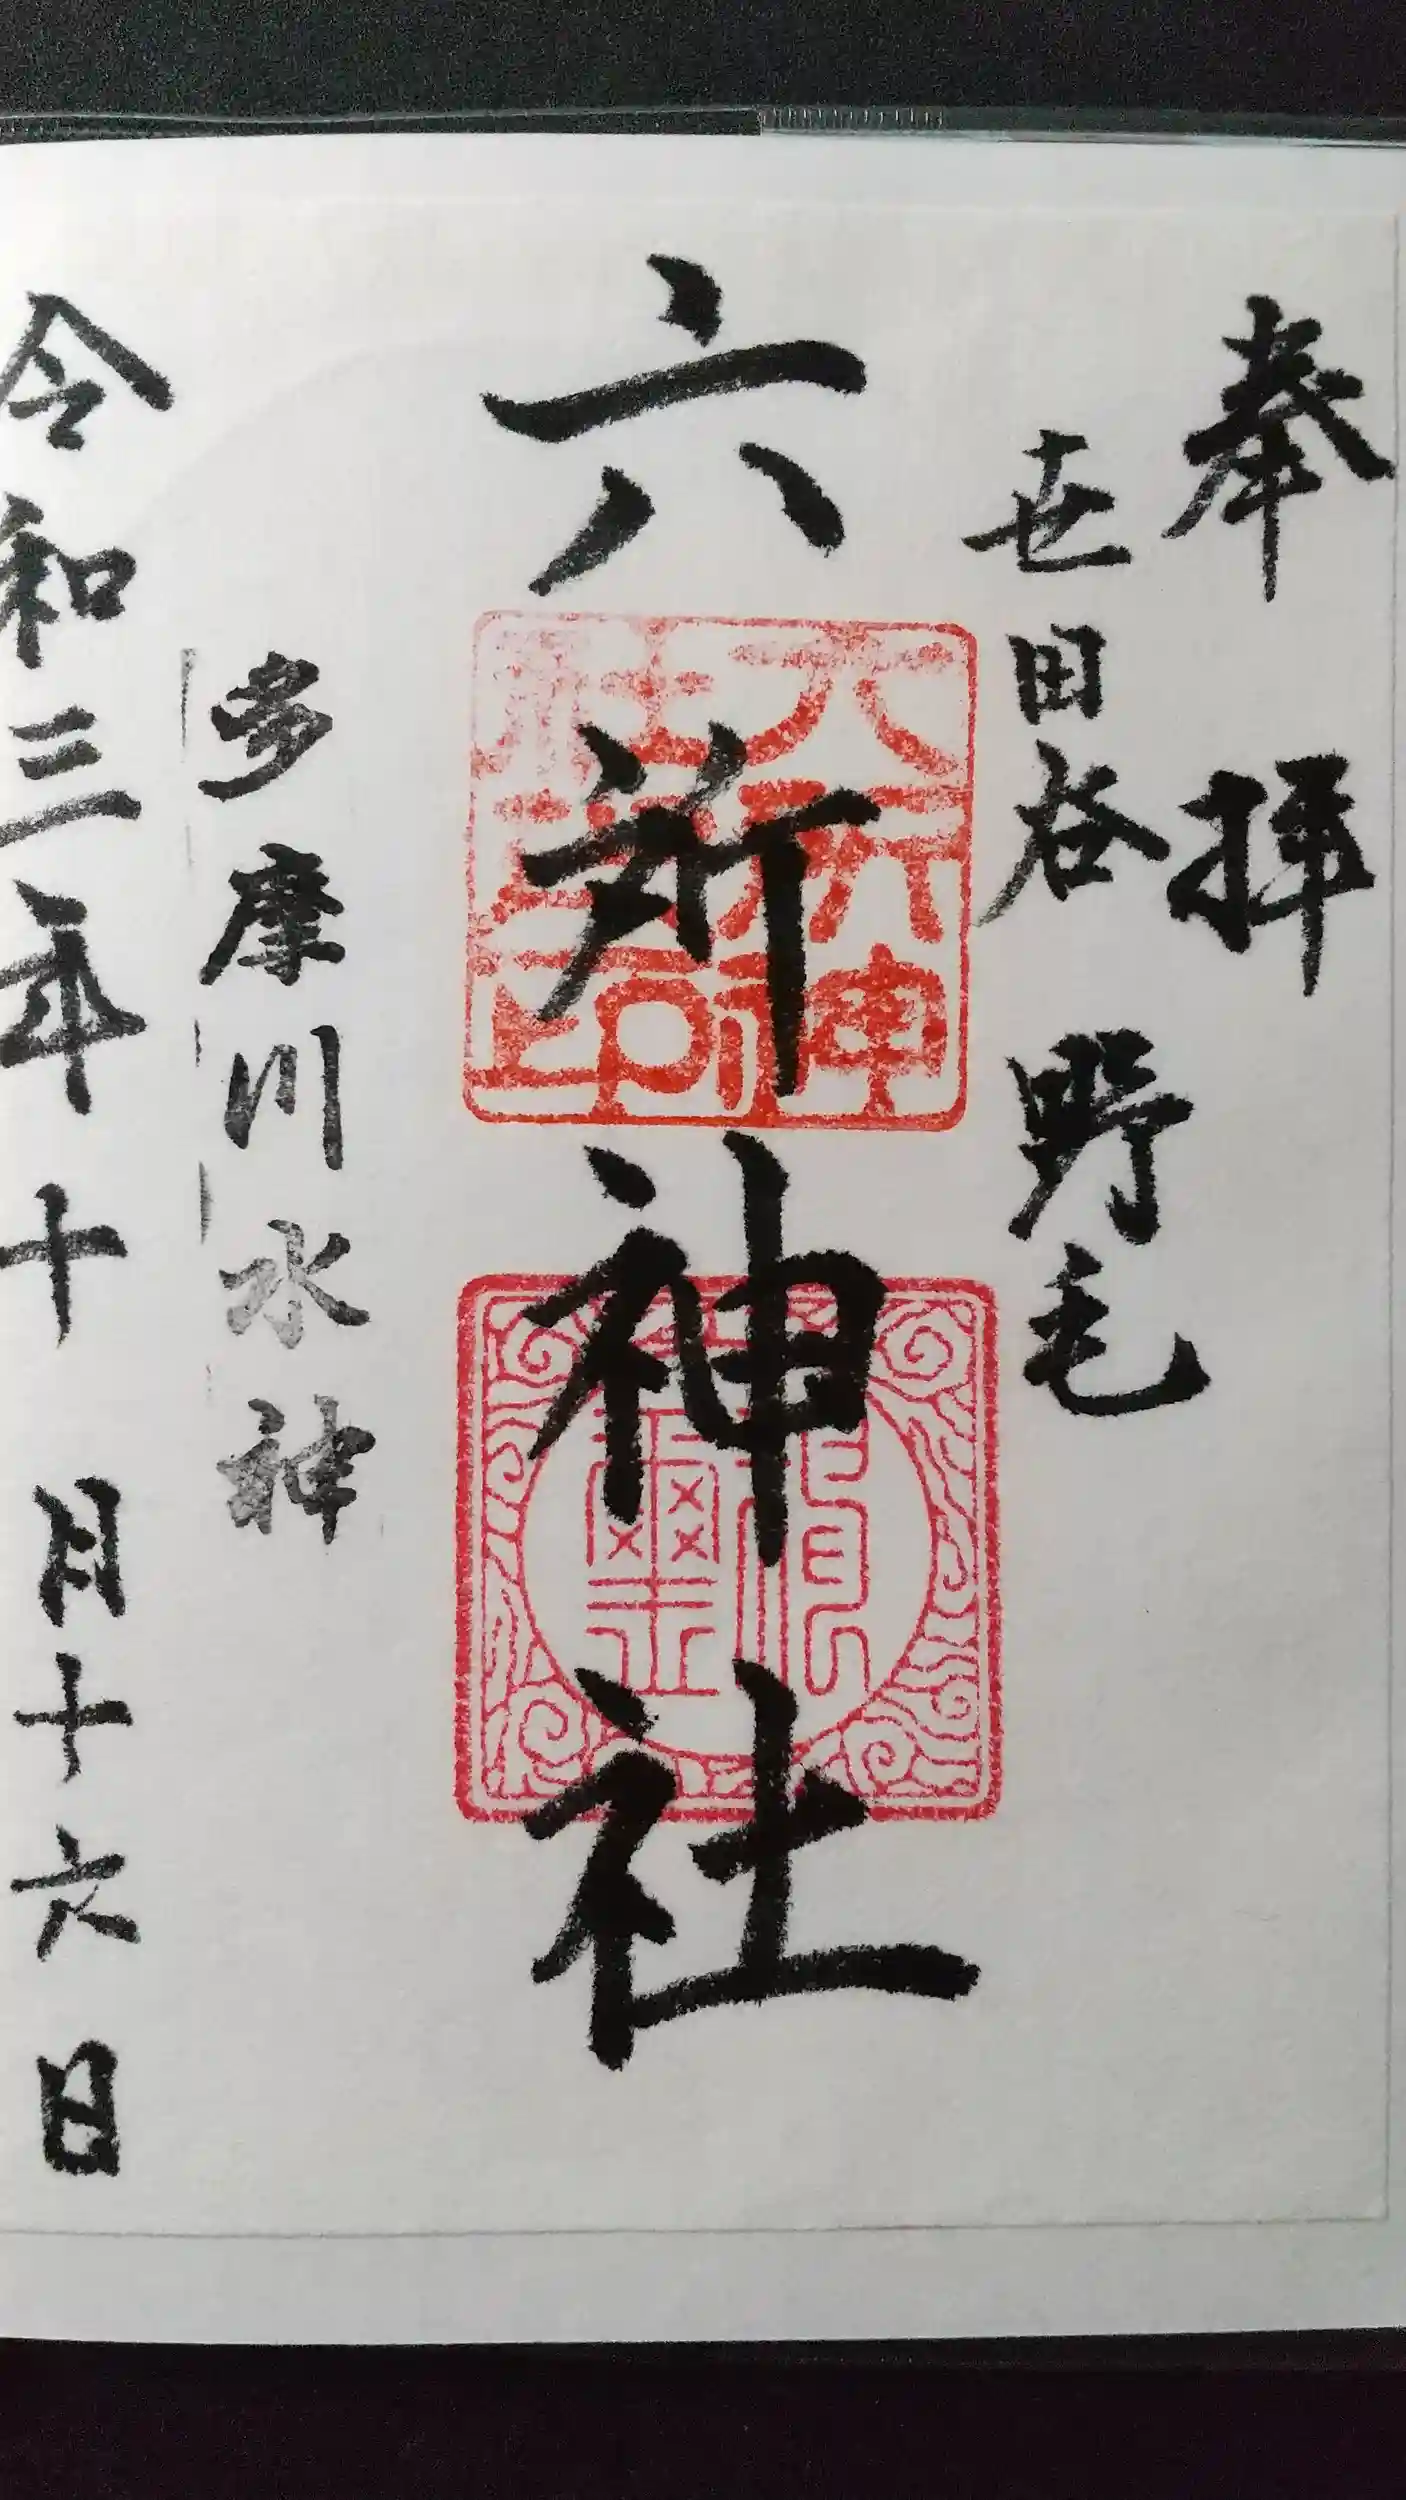 奉拝
世田谷 野毛
六所神社
多摩川水神
令和三年十月十六日